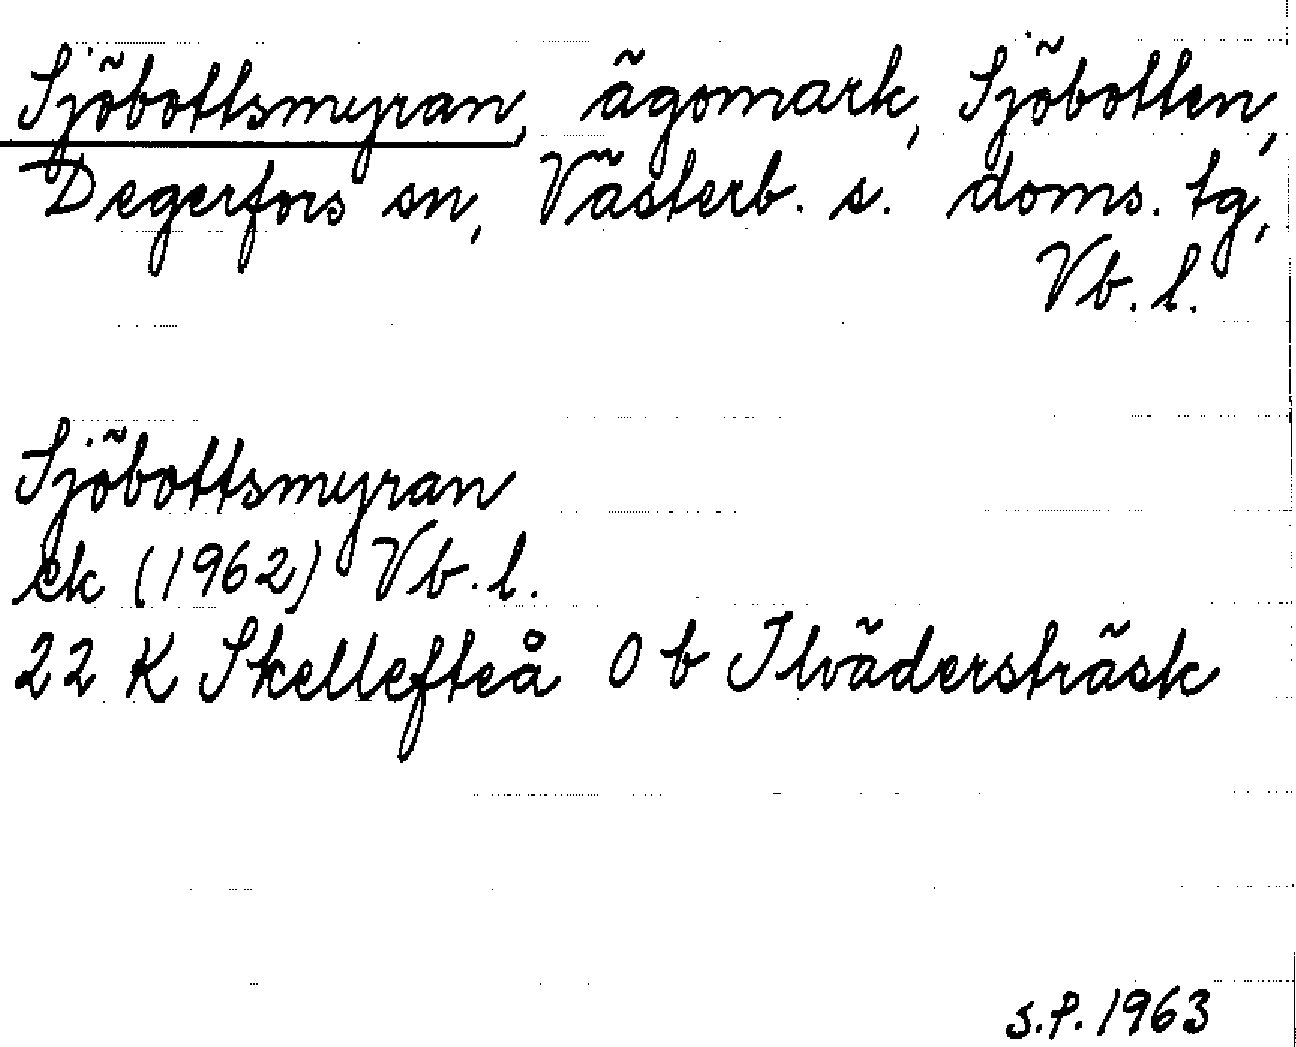 Sjöbottsmyran, ägomark, Sjöbotten,
Degerfors sn, Västerb. s. doms. tg,
Vb. l.
Sjöbottsmyran
ek (1962) Vb. l.
22 K Skellefteå 0 b Ilvädersträsk
s.f. 1963